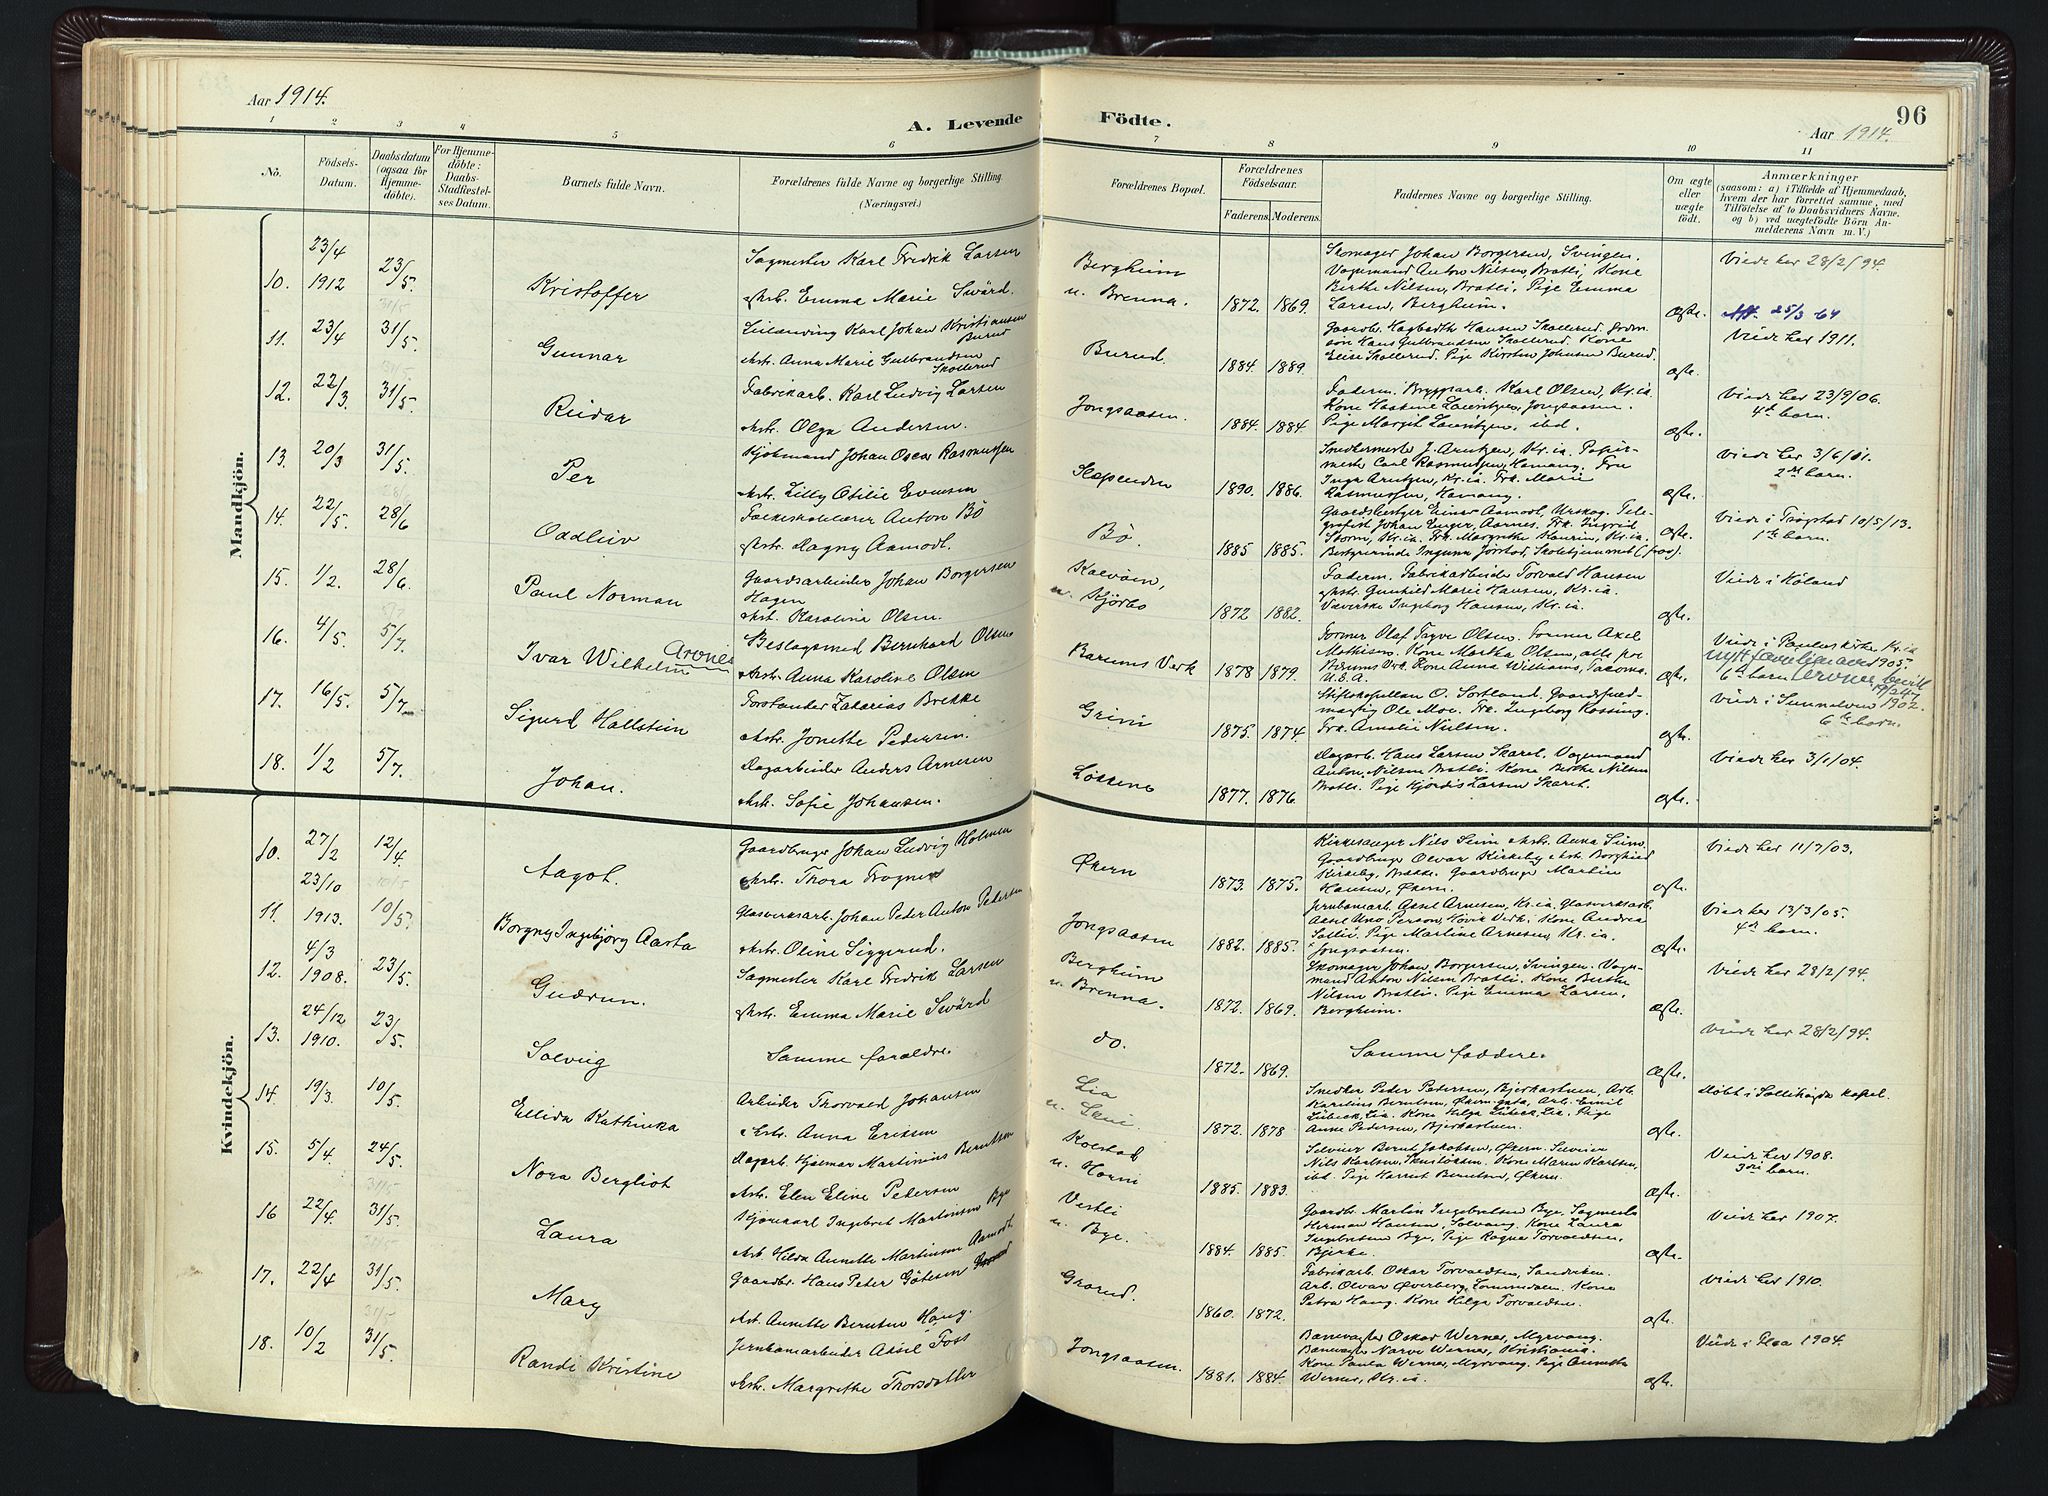 Aar 1914.
A. Levende Födte.
96
Aar 1914.
1 2 3 4 5 6 7 8 9 10 11
No.
Födsels-Datum.
Daabsdatum (ogsaa for Hjemmedöbte).
For Hjemmedöbte: Daabs-Stadfæstelses Datum.
Barnets fulde Navn.
Forældrenes fulde Navne og borgerlige Stilling. (Næringsvei.)
Forældrenes Bopæl.
Forældrenes Födselsaar.
Faderens. Moderens.
Faddernes Navne og borgerlige Stilling.
Om ægte eller uægte födt.
Anmærkninger (saasom: a) i Tilfælde af Hjemmedaab, hvem der har forrettet samme, med Tilföielse af to Daabsvidners Navne, og b) ved uægtefödte Börn Anmelderens Navn m. V.)
Mandkjön.
10. 23/4 1912 23/5. Kristoffer
Sagmester Karl Fredrik Larsen
Hstr. Emma Marie Swärd.
Bergheim u. Brenna. 1872. 1869.
Skomager Johan Borgersen, Svingen.
Vognmand Anton Nilsen, Bratli, Kone
Birthe Nilsen, Bratli, Pige Emma
Larsen, Bergheim.
Ægte. Viede her 28/2/94.
Att. 25/3 64
11. 23/4 31/5. Gunnar
Leilænding Karl Johan Kristiansen Burud
Hstr. Anna Marie Gulbrandsen Skollerud
Burud. 1884. 1889.
Gaardbr. Hagbarth Hansen Skollerud.
Hans Gulbrandsen Skollerud. Kone
Elise Skollerud. Pige Kirsten Johnsen Burud.
ægte. Viede her 1911.
12. 22/3. 31/5. Reidar
Fabrikarb. Karl Ludvig Larsen
Hstr. Olga Andersen.
Jongsaasen. 1884. 1884
Faderen. Bryggearb. Karl Olsen, Kr.ia.
Pige Margit Lauritzen, ibd.
ægte. Viede her 23/9/06.
4de barn.
13. 20/3 31/5. Per
Kjöbmand Johan Oscar Rasmussen
Hstr. Lilly Otilie Evensen
Slependen 1890. 1886.
Snedkermester J. Arntzen, Kr.ia. Papirmester Carl Rasmussen, Hamang. Fru
Inga Arntzen, Kr.ia. Frk. Marie
Rasmussen, Hamang.
ægte. Viede her 3/6/11.
2det barn.
14. 22/5. 28/6 Oddleiv
Folkeskolelærer Anton Bö
Hstr. Dagny Aamodt.
Bö. 1885 1885.
Gaardsbestyr Einar Aamodt, Urskog. Telegrafist Johan Enger, Aarnes. Frk. Ingrid
Storm, Kr.ia. Frk. Margrethe Kaurin, Kr.ia.
Bestyrerinde Ingunn Jörstad, Skolehjemmet
ægte. Viede i Trögstad 10/5/13.
1ste barn.
15. 1/2. 28/6. Paul Norman
Gaardsarbeider Johan Borgersen Hagen
Hst. Karoline Olsen.
Kalvöen, u. Kjörbo 1872 1882.
Faderen. Fabrikarbeider Torvald Hansen
Hstr. Gunhild Marie Hansen, Kr.ia.
Væverske Ingeborg Hansen, Kr.ia.
ægte. Viede i Höland
16. 4/5. 5/7. Ivar Wilhelm Arones
Beslagsmed Bernhard Olsen
Hstr. Anna Karoline Olsen
Bærums Verk 1878 1879.
Former Olaf Tryve Olsen. Former Axel
Mathisen. Kone Martha Olsen, alle paa
Bærums Verk. Kone Anna Williams, Tacoma
U.S.A.
ægte. Viede i Paulus kirke Kr.ia 1905.
6te barn.
17. 16/5. 5/7. Sigurd Hallstein
Forstander Zakarias Brekke
Hstr. Jonette Pedersen.
Grini 1875. 1874.
Stiftskapellan O. Sortland. Gaardsfuldmægtig Ole Moe. Frk. Ingeborg Rossing.
Frk. Amalie Nielsen.
ægte. Viede i Sunnelven 1902.
6te barn.
18. 1/2 5/7. Johan.
Dagarbeider Anders Arnesen
Hstr. Sofie Johansen.
Lökkene 1877. 1876.
Dagarb. Hans Larsen Skaret. Vognmand
Anton Nilsen Bratli. Kone Birthe Nilsen
Bratli. Pige Hjördis Larsen Skaret.
ægte. Viede her 3/1/04.
Kvindekjön.
10. 27/2 12/4. Aagot.
Gaardbruger Johan Ludvig Holmen
Hstr. Thora Frogner
Økern 1873. 1875.
Kirkesanger Nils Seim Hstr. Anna Seim.
Gaardbruger Olvar Kirkeby Hstr. Borghild
Kirkeby, Bække. Gaardbruger Martin
Hansen, Økern.
ægte. Viede her 11/7/03.
11. 23/10 1913. 10/5. Borgny Ingebjörg Aasta
Glasverksarb. Johan Peder Anton Pedersen
Hstr. Oline Siggerud.
Jongsaasen 1882. 1885.
Jernbanearb. Aksel Arnesen, Kr.ia. Glasverksarb.
Aksel Uno Person, Hövik Verk. Kone Andrea
Sollie, Pige Martine Arnesen, Kr.ia.
Jongsaasen.
Ægte. Viede her 13/3/05.
4de barn.
12. 4/3 1908. 23/5. Gudrun.
Sagmester Karl Fredrik Larsen
Hstr. Emma Marie Swärd
Bergheim u. Brenna. 1872. 1869.
Skomager Johan Borgersen, Svingen. Vognmand Anton Nilsen Bratli. Kone Birthe
Nilsen Bratli. Pige Emma Larsen,
Bergheim.
Ægte. Viede her 28/2/94.
13. 24/12 1910. 23/5. Solveig
Samme forældre.
do. 1872. 1869.
Samme faddere.
Ægte. Viede her 28/2/94.
14. 19/3. 10/5. Ellida Kathinka
Arbeider Thorvald Johansen
Hstr. Anna Eriksen
Lia u. 1872. 1878
Snedker Peder Pedersen, Bjerkastuen, Arb.
Karelius Berntsen, Økern, Arb. Emil
Lübeck, Lia. Kone Helga Lübeck, Lia. Pige
Anne Pedersen, Bjerkastuen.
ægte. Döbt i Sollihögda kapel.
15. 5/4. 24/5. Nora Bergliot
Dagarb. Hjalmar Martinius Berntsen
Hstr. Elen Eline Pedersen
Kolstad u. Horni 1885. 1883.
Selveier Bernt Jakobsen, Økern. Selveier
Nils Karlsen, Kone Maren Karlsen,
ibd. Pige Harriet Berntsen, Økern.
Ægte. Viede her 1908.
3die barn.
16 22/4. 31/5. Laura
Ingebret Martinsen Bye
Hst. Hilda Annette Martinsen Aamodt
Vestli u. Bye. 1884. 1885.
Gaardbr. Martin Ingebretsen Bye, Sagmester
Herman Hansen, Solvang. Kone Laura
Ingebretsen Bye, Pige Ragna Torvaldsen,
Bjerke.
Ægte. Viede her 1907.
17. 22/4 31/5. Mary
Gaardbr. Hans Peter Götesen
Hst. Annette Berntsen Haug.
Grorud. 1860. 1872.
Fabrikarb. Oskar Torvaldsen, Sandviken.
Arb. Olvar Øverberg, Lommedalen. Kone
Petra Haug. Kone Helga Torvaldsen.
ægte. Viede her 1910.
18. 10/2 31/5. Randi Kristine
Jernbanearbeider Aksel Foss
Hstr. Margrethe Thorsdatter
Jongsaasen. 1881. 1884.
Banevogter Oskar Werner, Myrvang.
Banevogter Narve Werner, Kristiania.
Kone Paula Werner, Myrvang. Pige Annette
Werner, Kr.ia.
ægte. Viede i Flaa 1904.